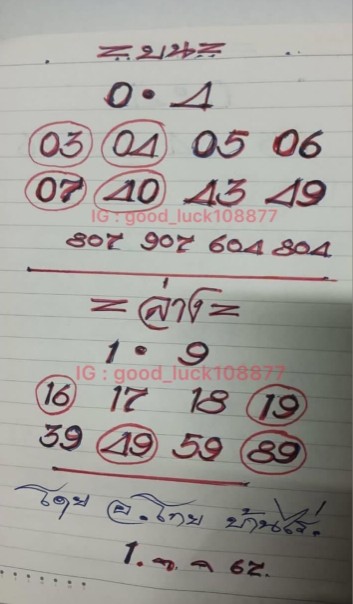 = บน =
0 • 4
03 04 05 06
07 40 43 49
IG : good_luck108877
807 907 604 804
= ล่าง =
1 • 9
IG : good_luck108877
16 17 18 19
39 49 59 89
โดย อ.ไทย บ้านไร่.
1. ก. ค 67.